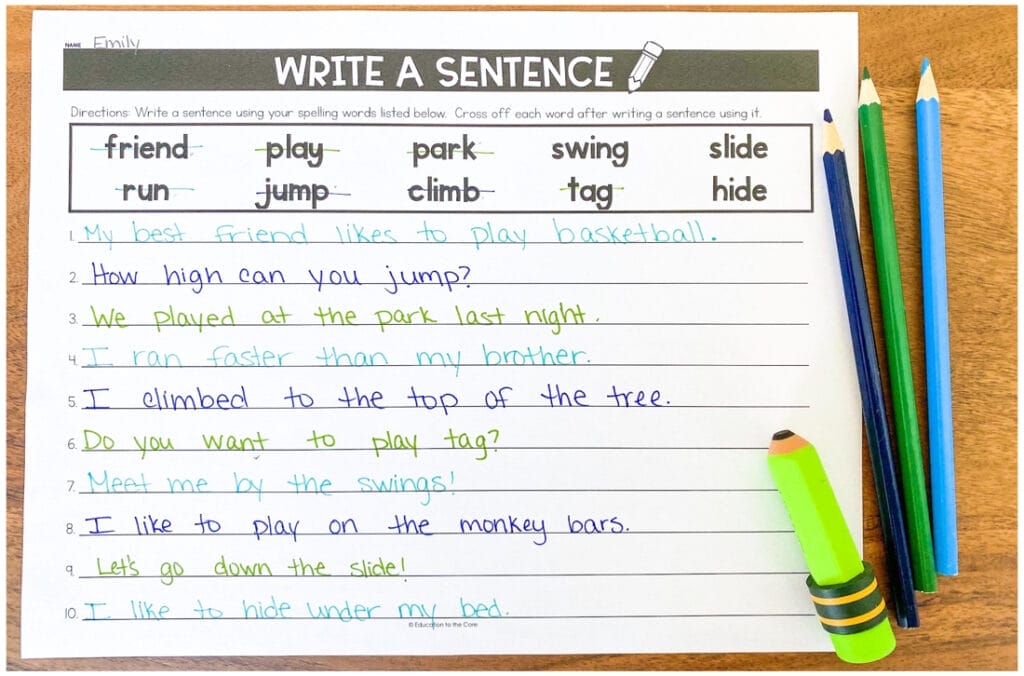 NAME Emily
WRITE A SENTENCE
Directions: Write a sentence using your spelling words listed below. Cross off each word after writing a sentence using it.
friend play park swing slide
run jump climb tag hide
1. My best friend likes to play basketball.
2. How high can you jump?
3. We played at the park last night.
4. I ran faster than my brother.
5. I climbed to the top of the tree.
6. Do you want to play tag?
7. Meet me by the swings!
8. I like to play on the monkey bars.
9. Let's go down the slide!
10. I like to hide under my bed.
© Education to the Core